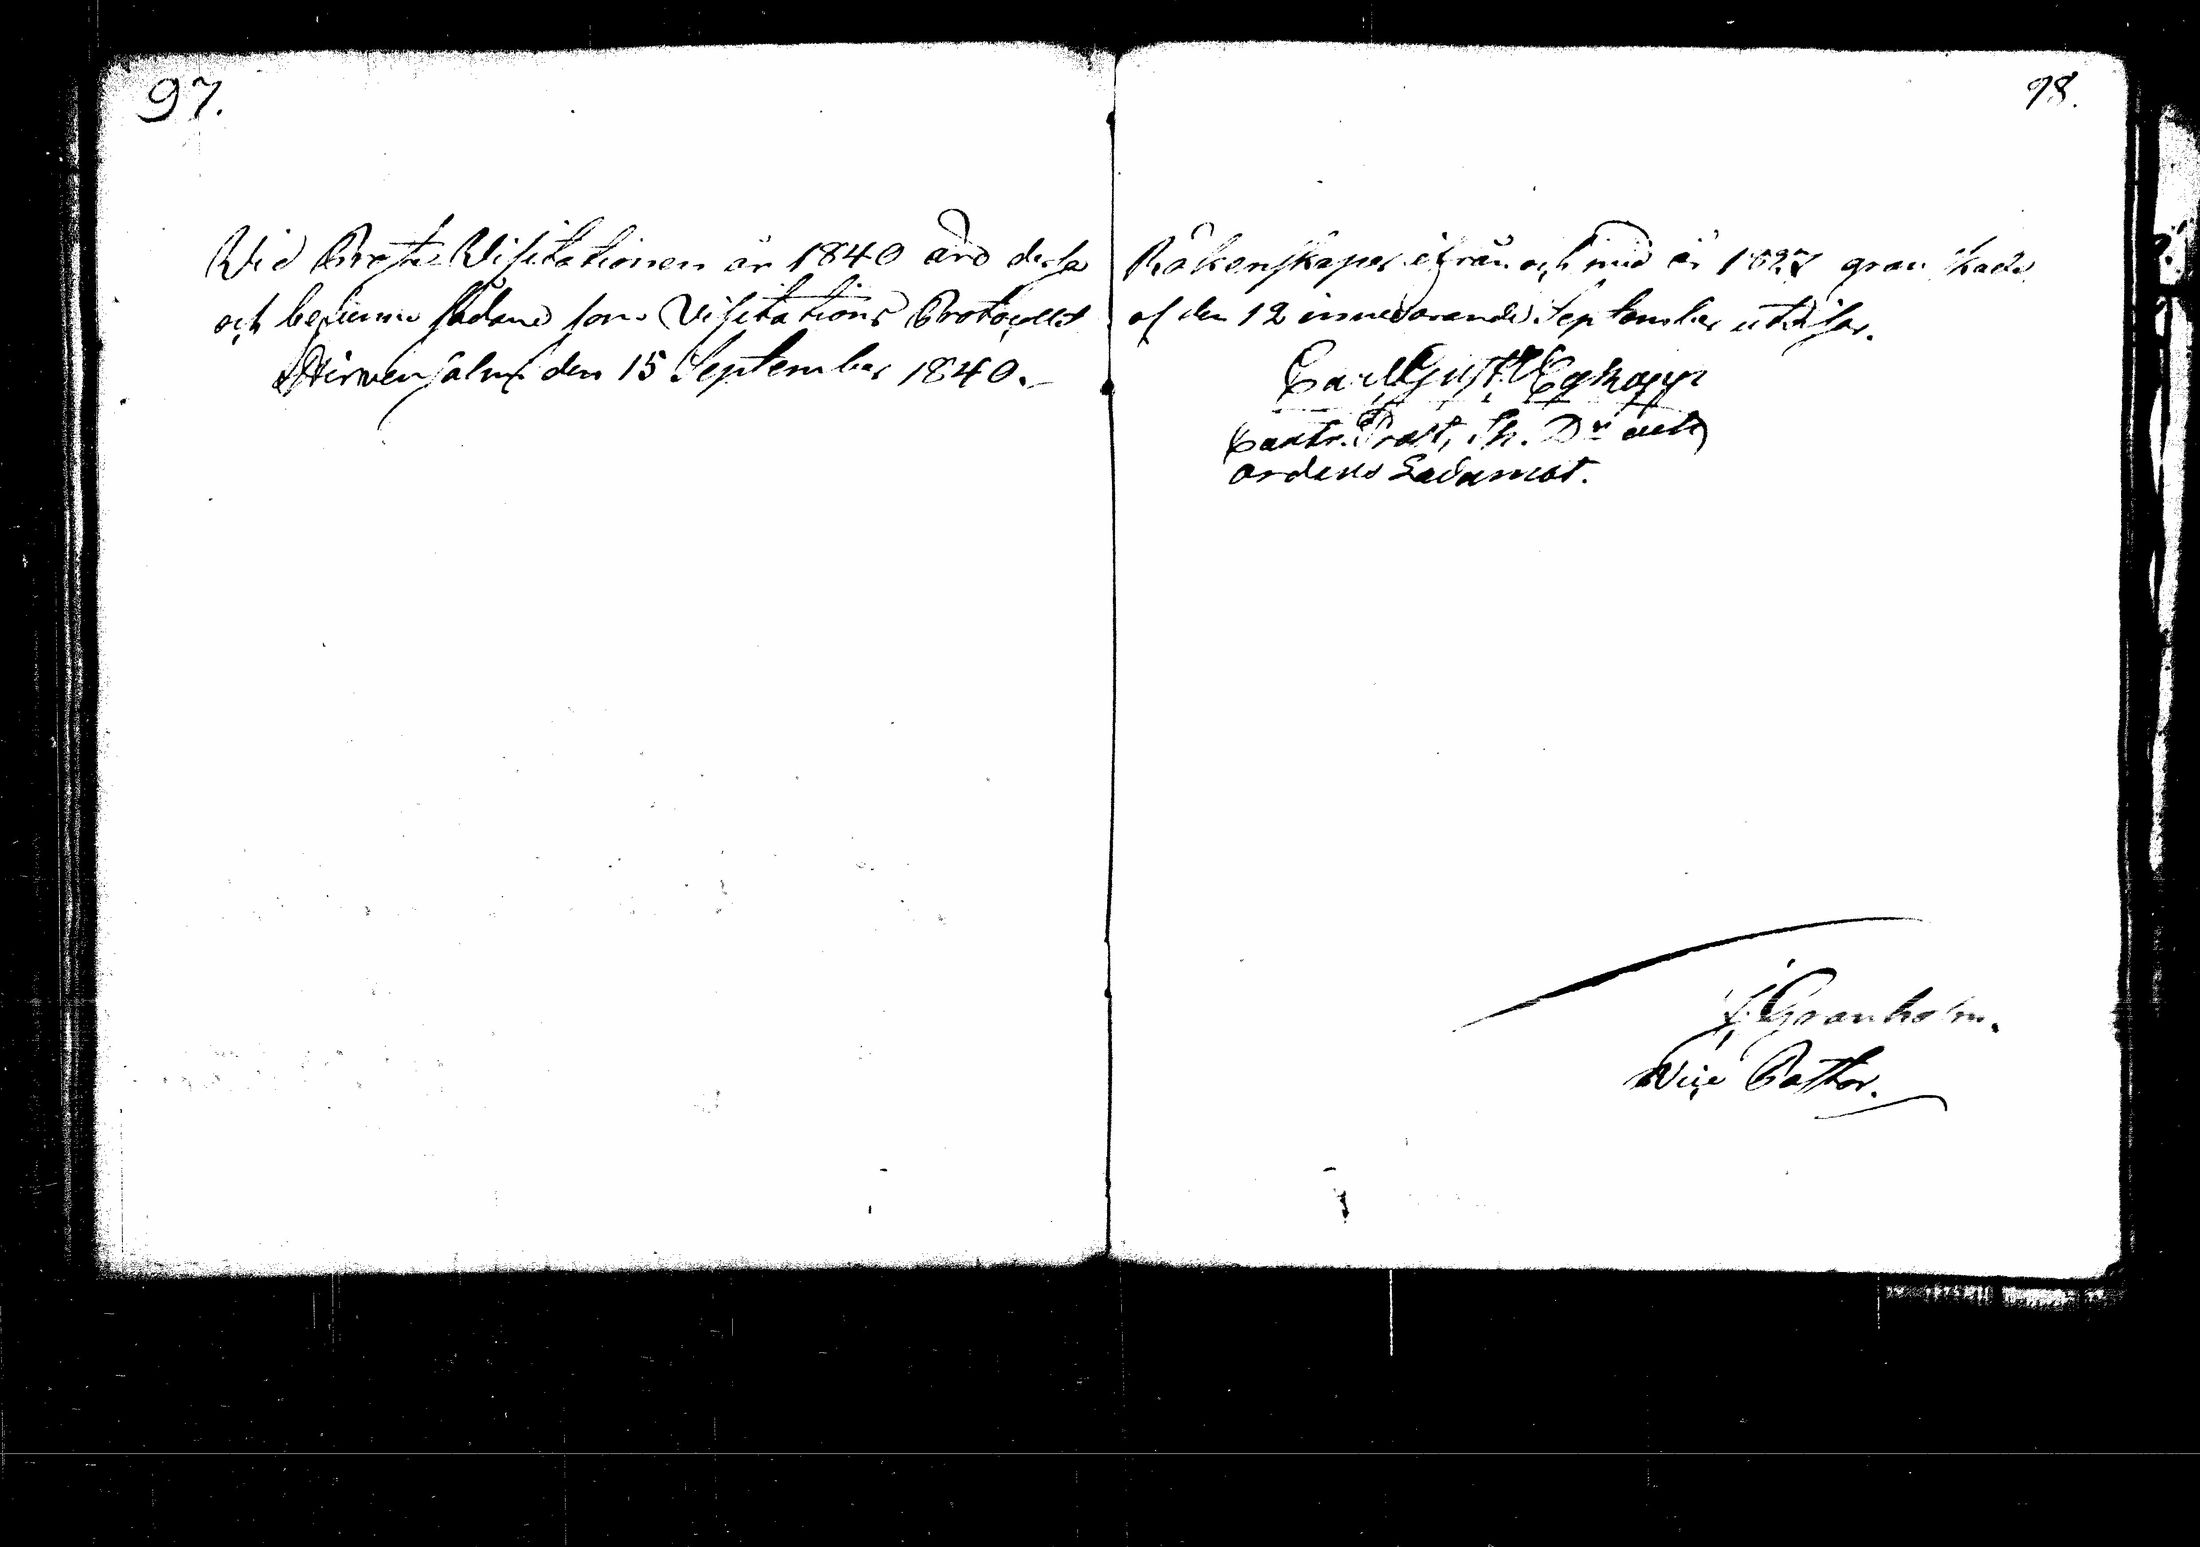 97.
98.
Wid Prosts Visitationen år 1840 äro dessa Räkenskaper ifrån och med år 1827 granskade
och befunne sådane som Visitations Protocollet af den 12 innevarande September utvisar.
Hirvensalmi den 15 September 1840.
Carl Gust. Egkopp
Contr. Prost, Th. Dr och
ordens Ledamot.
Granholm.
Vice Pastor.